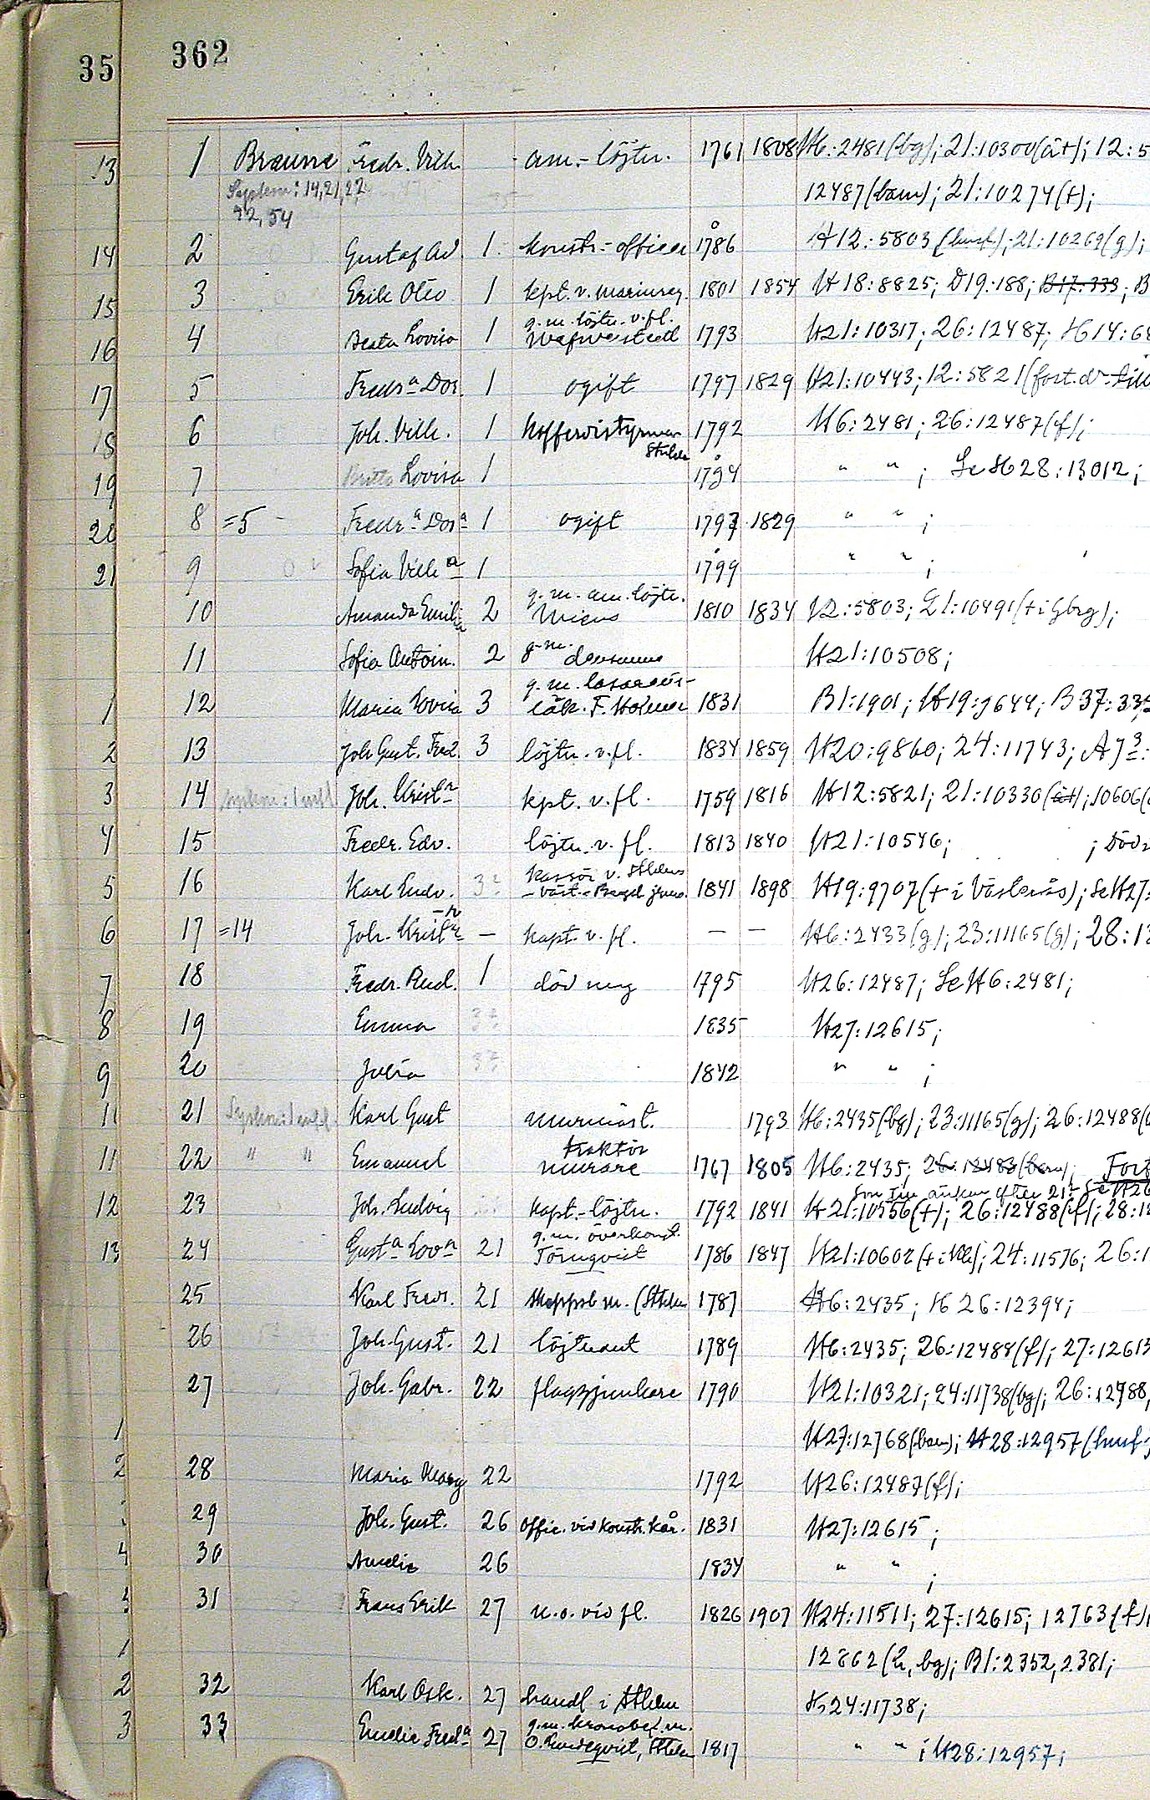 35 362
13 1 Fredr. Vilh. am.-löjtn. 1761 1808 H6:2481(bg); 21:10300(åt); 12:5
System: 14, 21, 22, 12487(barn); 21:10274(t);
92, 54
14 2 Gustaf Ad. 1. konstr.-officer 1786 H12:5803 21:10269(g);
15 3 Erik Otto 1 kpt. v. marinreg. 1801 1854 H18:8825; D19:188; B17:333; B
g. m. löjtn. v. fl.
16 4 Beata Lovisa 1 1793 H21:10317; 26:12487; H14:68
17 5 Fredr.a Dor. 1 ogift 1797 1829 H21:10443; 12:5821(fort.
18 6 Joh. Vilh. 1 1792 H6:2481; 26:12487(f);
Sthlm
19 7 Britta Lovisa 1 1794 " " ; Se H28:13012;
20 8 =5 Fredr.a Dor.a 1 ogift 1797 1829 " " ;
21 9 Sofia Vilh.a 1 1799 " " ;
g. m. am. löjtn.
10 Amanda Emilia 2 1810 1834 12:5803; 21:10491(+ i Gbrg);
11 Sofia Antoin. 2 g. m. densamme H21:10508;
g. m. lasaretts-
1 12 Maria Lovisa 3 läk. F. Holmer 1831 B1:1901; H19:9644; B37:335
2 13 Joh. Gust. Fred. 3 löjtn. v. fl. 1834 1859 H20:9860; 24:11743; A73:
3 14 Joh. Krist:n kpt. v. fl. 1759 1816 H12:5821; 21:10330(åt); 10606(
4 15 Fredr. Edv. löjtn. v. fl. 1813 1840 H21:10546; ; död
kassör v. Sthlms
5 16 Karl Ludv. 3? - Väst. Bergsl. jernv. 1841 1898 H19:9707(+ i Västerås); Se H27:
6 17 =14 Joh. Krist:n — kapt. v. fl. — — H6:2433(g); 23:11165(g); 28:13
7 18 Fredr. Rud. 1 död ung 1795 H26:12487; Se H6:2481;
8 19 Emma 3? 1835 H27:12615;
9 20 Julia 3? 1842 " " ;
11 21 Karl Gust 1793 H6:2435(bg); 23:11165(g); 26:12488(
traktör
11 22 " " Emanuel murare 1767 1805 H6:2435; 26:12483(barn); Fort
12 23 Joh. Ludvig kapt.-löjtn. 1792 1841 H21:10556(+); 26:12488(f); 28:12
g. m. överkonst.
13 24 Gust.a Lov.a 21 Törnqvist 1786 1847 H21:10602(+ i Kka); 24:11576; 26:1
25 Karl Fredr. 21 skeppsb m. (Sthlm 1787 H6:2435; H26:12394;
26 Joh. Gust. 21 löjtnant 1789 H6:2435; 26:12488(f); 27:12613
27 Joh. Gabr. 22 flaggjunkare 1790 H21:10321; 24:11738(bg); 26:12488,
1 H27:12768(barn); H28:12957(husf.;
2 28 Maria Marg 22 1792 H26:12487(f);
29 Joh. Gust. 26 offic. vid konstr. kår. 1831 H27:12615;
4 30 Amelie 26 1834 " " ;
5 31 Frans Erik 27 u.o. vid fl. 1826 1907 H24:11511; 27:12615; 12763(f),
1 12862(h, bg); B1:2352, 2381;
2 32 Karl Osk. 27 handl i Sthlm H24:11738;
g. m. kronobef. m.
3 33 Emelie Fred.a 27 O. Lundeqvist, Sthlm 1817 " " ; H28:12957;